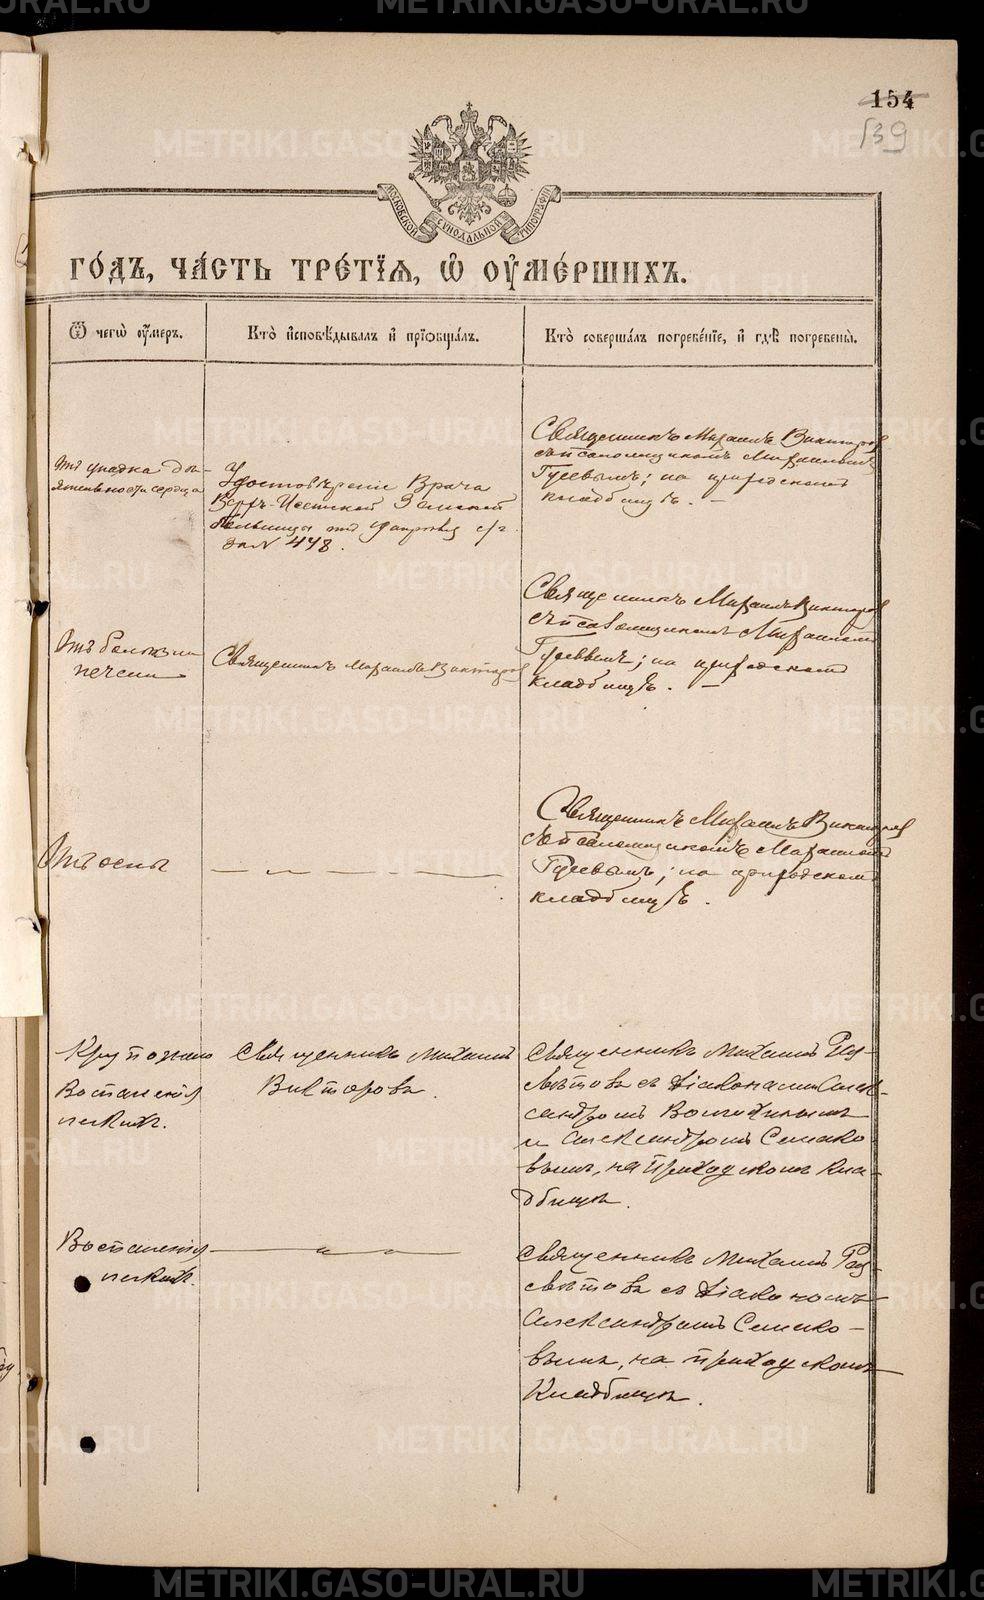 154
139
МОСКОВСКОЙ СѴНОДАЛЬНОЙ ТИПОГРАФІИ
ГО́ДЪ, ЧА́СТЬ ТРЕ́ТІѦ, Ѡ҆ ОУ҆МЕ́РШИХЪ.
Ѿ чегѡ̀ оу҆́меръ.
Кто̀ и҆сповѣ́дывалъ и҆ прїѡбща́лъ.
Кто̀ соверша́лъ погребе́нїе, и҆ гдѣ̀ погребены̀.
Отъ упадка дѣ-
ятельности сердца
Удостовѣреніе Врача
Верхъ-Исетской Земской
больницы отъ
за № 448.
Священникъ Михаилъ Викторов
съ псаломщикомъ Михаиломъ
Гусевымъ; на приходскомъ
кладбищѣ. –
Отъ болѣзни
печени
Священникъ Михаилъ Викторов
Священникъ Михаилъ Викторов
съ псаломщикомъ Михаиломъ
Гусевымъ; на приходскомъ
кладбищѣ. –
Отъ оспы
— „ — - —
Священникъ Михаилъ Викторов
съ псаломщикомъ Михаиломъ
Гусевымъ; на приходскомъ
кладбищѣ.
Крупознаго
Воспаленія
легкихъ.
Священникъ Михаилъ
Викторовъ.
Священникъ Михаилъ Раз-
свѣтовъ съ діаконами Алек-
сандромъ
и Александромъ Семако-
вымъ, на приходскомъ кла-
дбищѣ.
Воспаленія
легкихъ.
— „ — „ —
Священникъ Михаилъ Раз-
свѣтовъ съ діакономъ
Александромъ Семако-
вымъ, на приходскомъ
Кладбищѣ.
METRIKI.GASO-URAL.RU